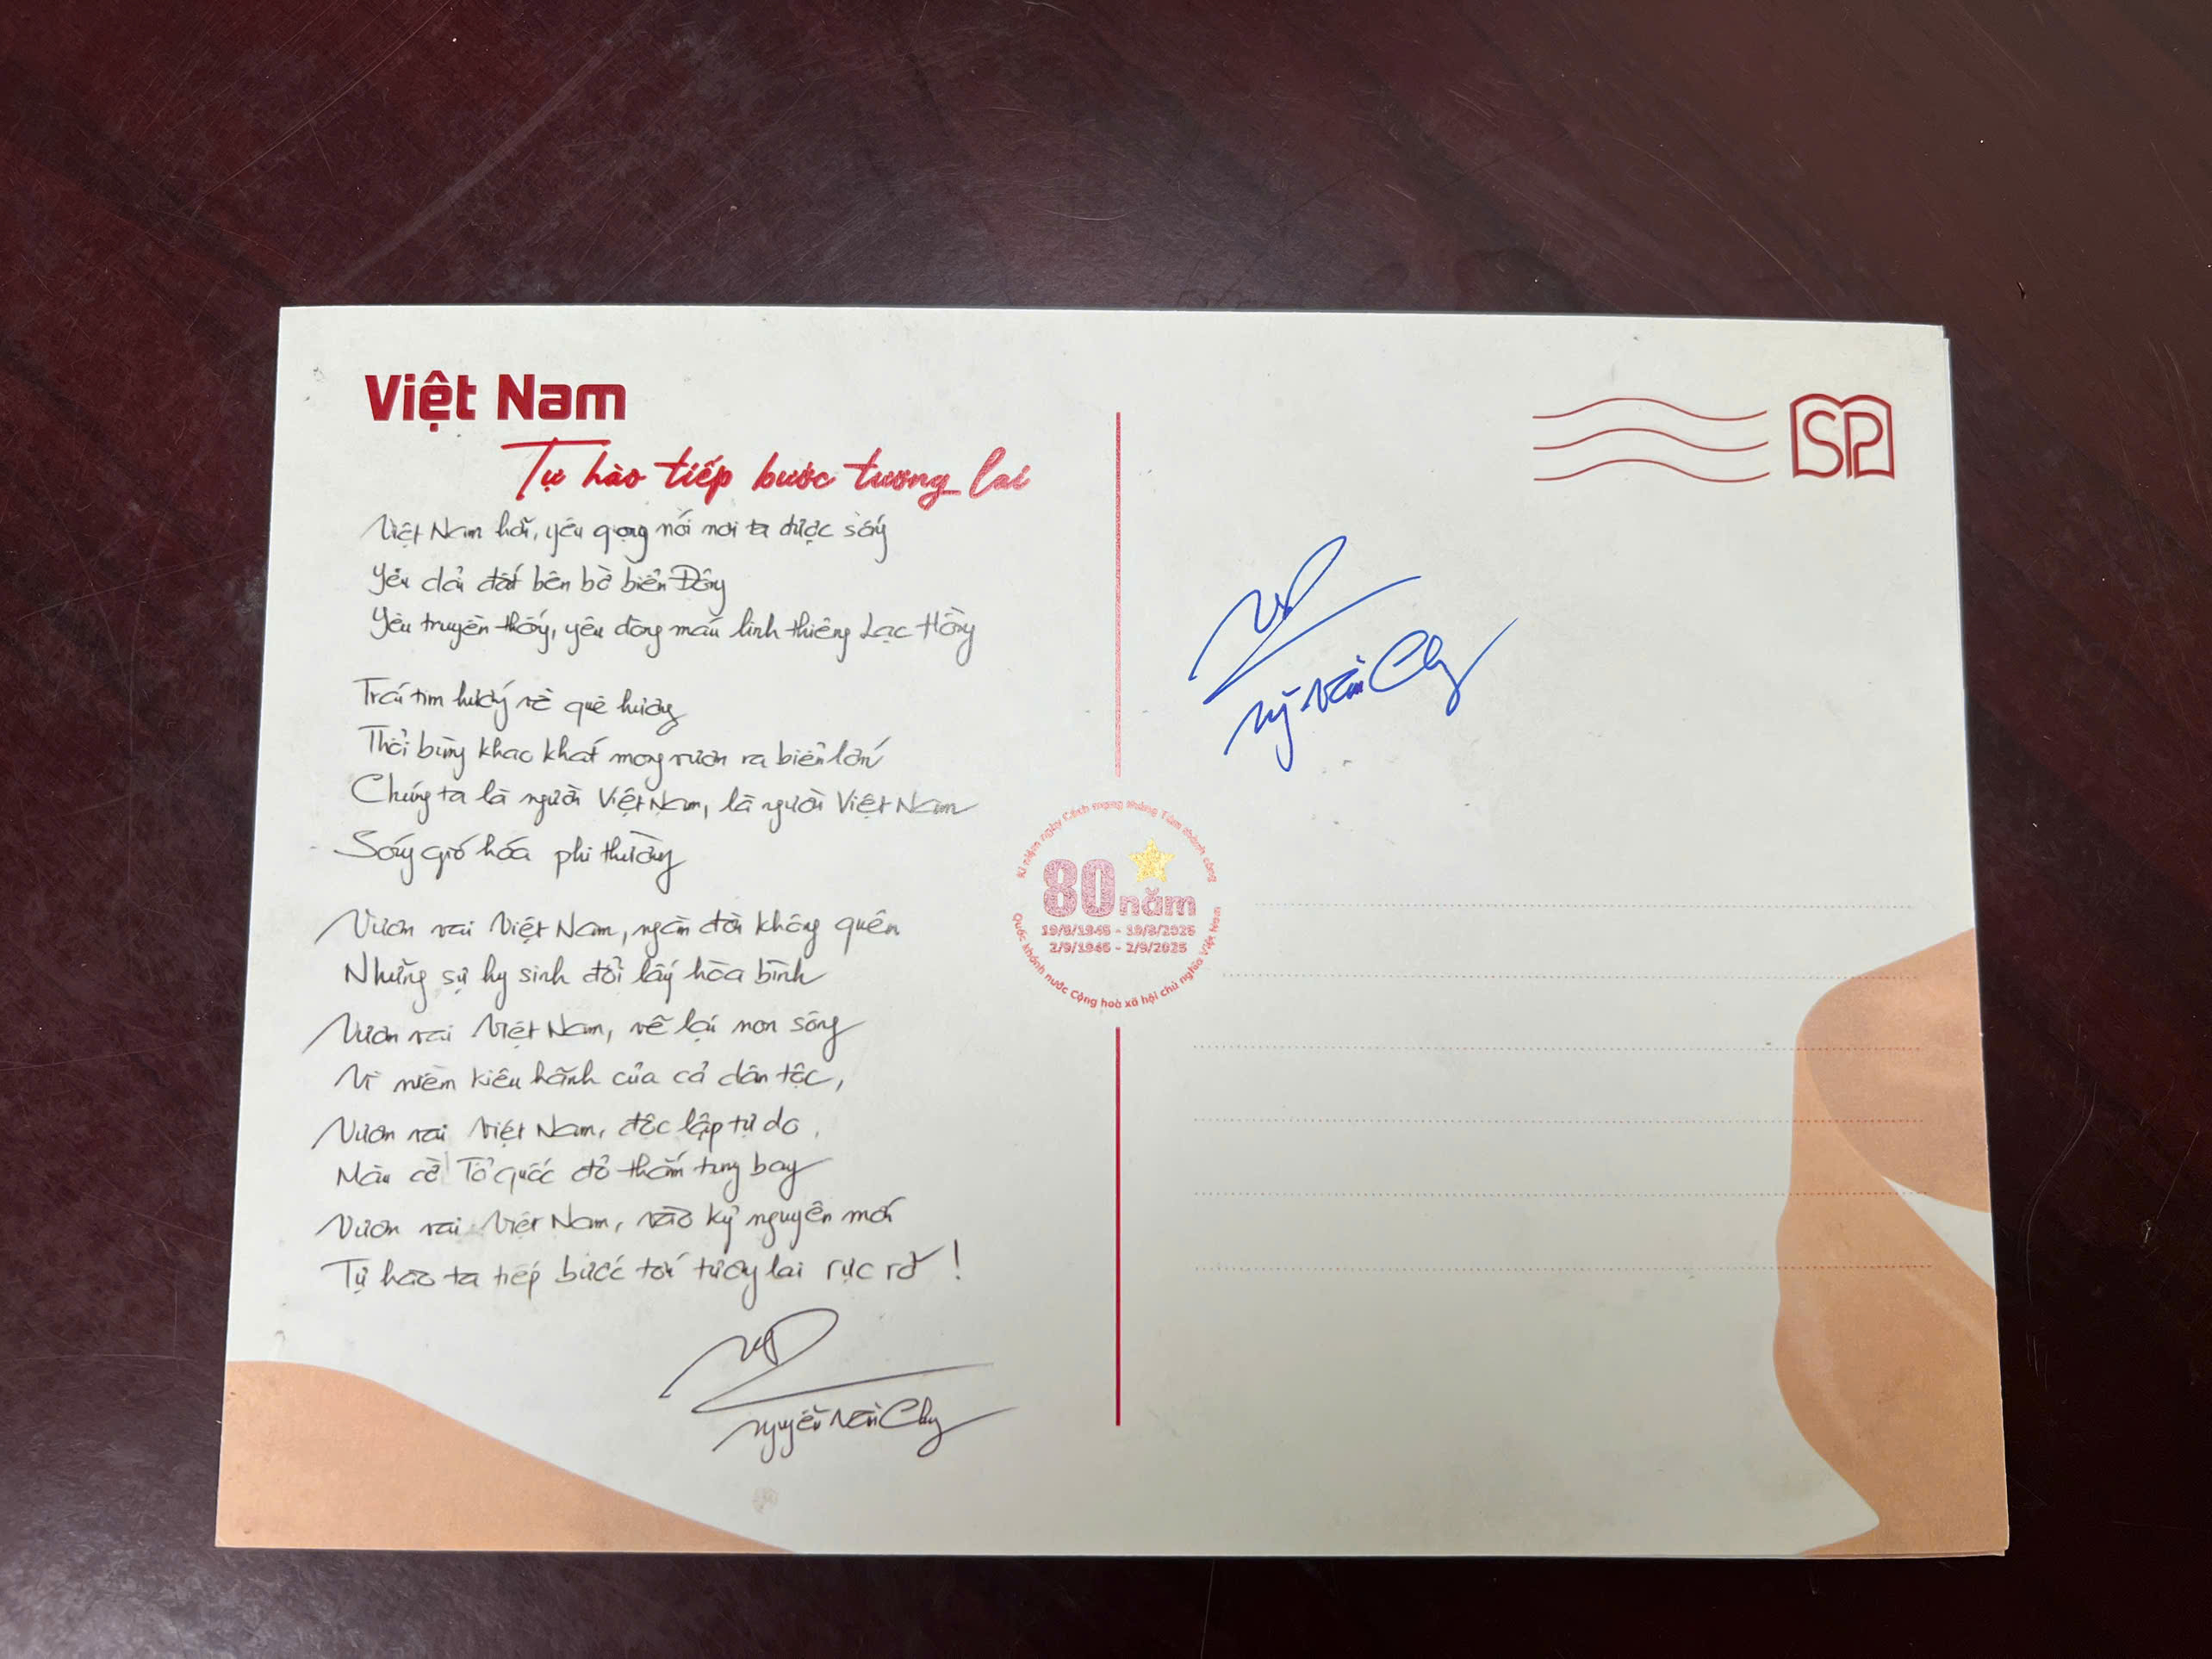 Việt Nam
Tự hào tiếp bước tương lai
Việt Nam hỡi, yêu giọng nói nơi ta được sống
Yêu dải đất bên bờ biển Đông
Yêu truyền thống, yêu dòng máu linh thiêng Lạc Hồng
Trái tim hướng về quê hương
Thổi bùng khao khát mong vươn ra biển lớn
Chúng ta là người Việt Nam, là người Việt Nam
Sóng gió hóa phi thường
Vươn vai Việt Nam, ngàn đời không quên
Những sự hy sinh đổi lấy hòa bình
Vươn vai Việt Nam, vẽ lại non sông
Vì niềm kiêu hãnh của cả dân tộc,
Vươn vai Việt Nam, độc lập tự do,
Màu cờ Tổ quốc đỏ thắm tung bay
Vươn vai Việt Nam, vào kỷ nguyên mới
Tự hào ta tiếp bước tới tương lai rực rỡ!
Nguyễn Văn Chung
Kỉ niệm ngày Cách mạng tháng Tám thành công
80 năm
19/8/1945 - 19/8/2025
2/9/1945 - 2/9/2025
Quốc khánh nước Cộng hoà xã hội chủ nghĩa Việt Nam
SP